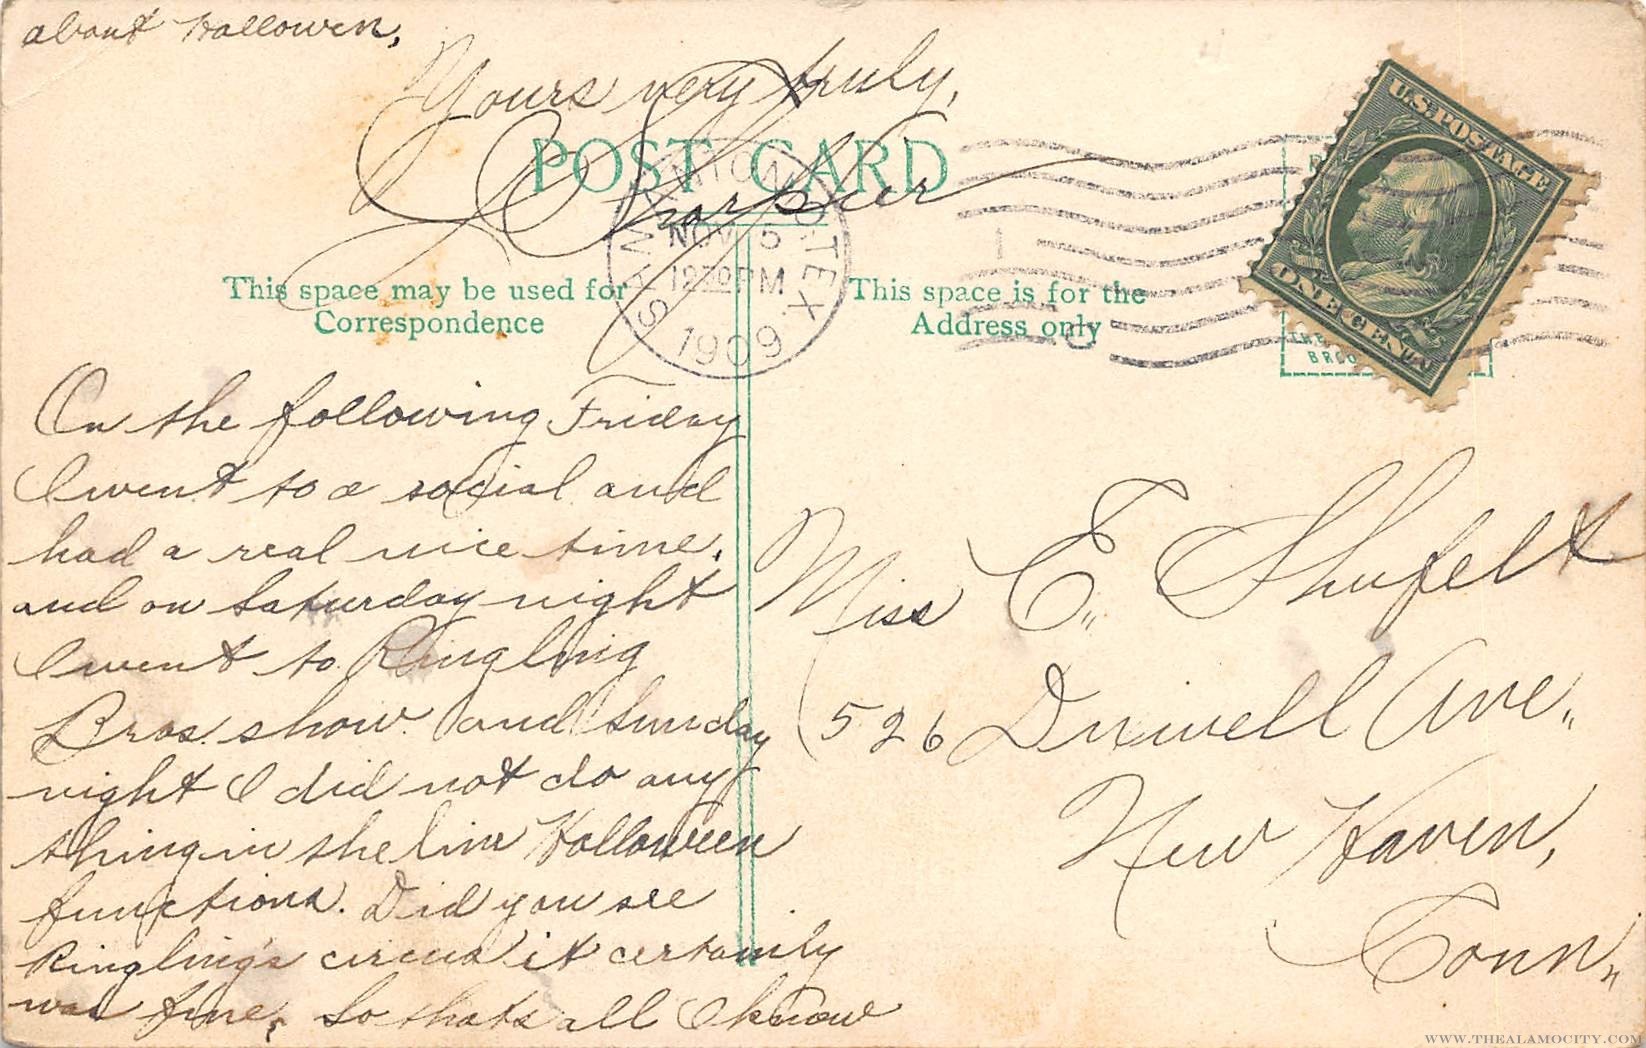 about Hallowen,
Yours very truly,
POST CARD
SAN ANTONIO, TEX.
NOV 5
12 30 PM
1909
U.S. POSTAGE
ONE CENT
This space may be used for
Correspondence
This space is for the
Address only
On the following Friday
I went to a social and
had a real nice time,
and on Saturday night
I went to Ringling
Bros. show. and Sunday
night I did not do any
thing in the line Halloween
functions. Did you see
Ringling's circus it certainly
was fine, So thats all I know
Miss E. Shufelt
526 Dixwell Ave.
New Haven,
Conn.
WWW.THEALAMOCITY.COM